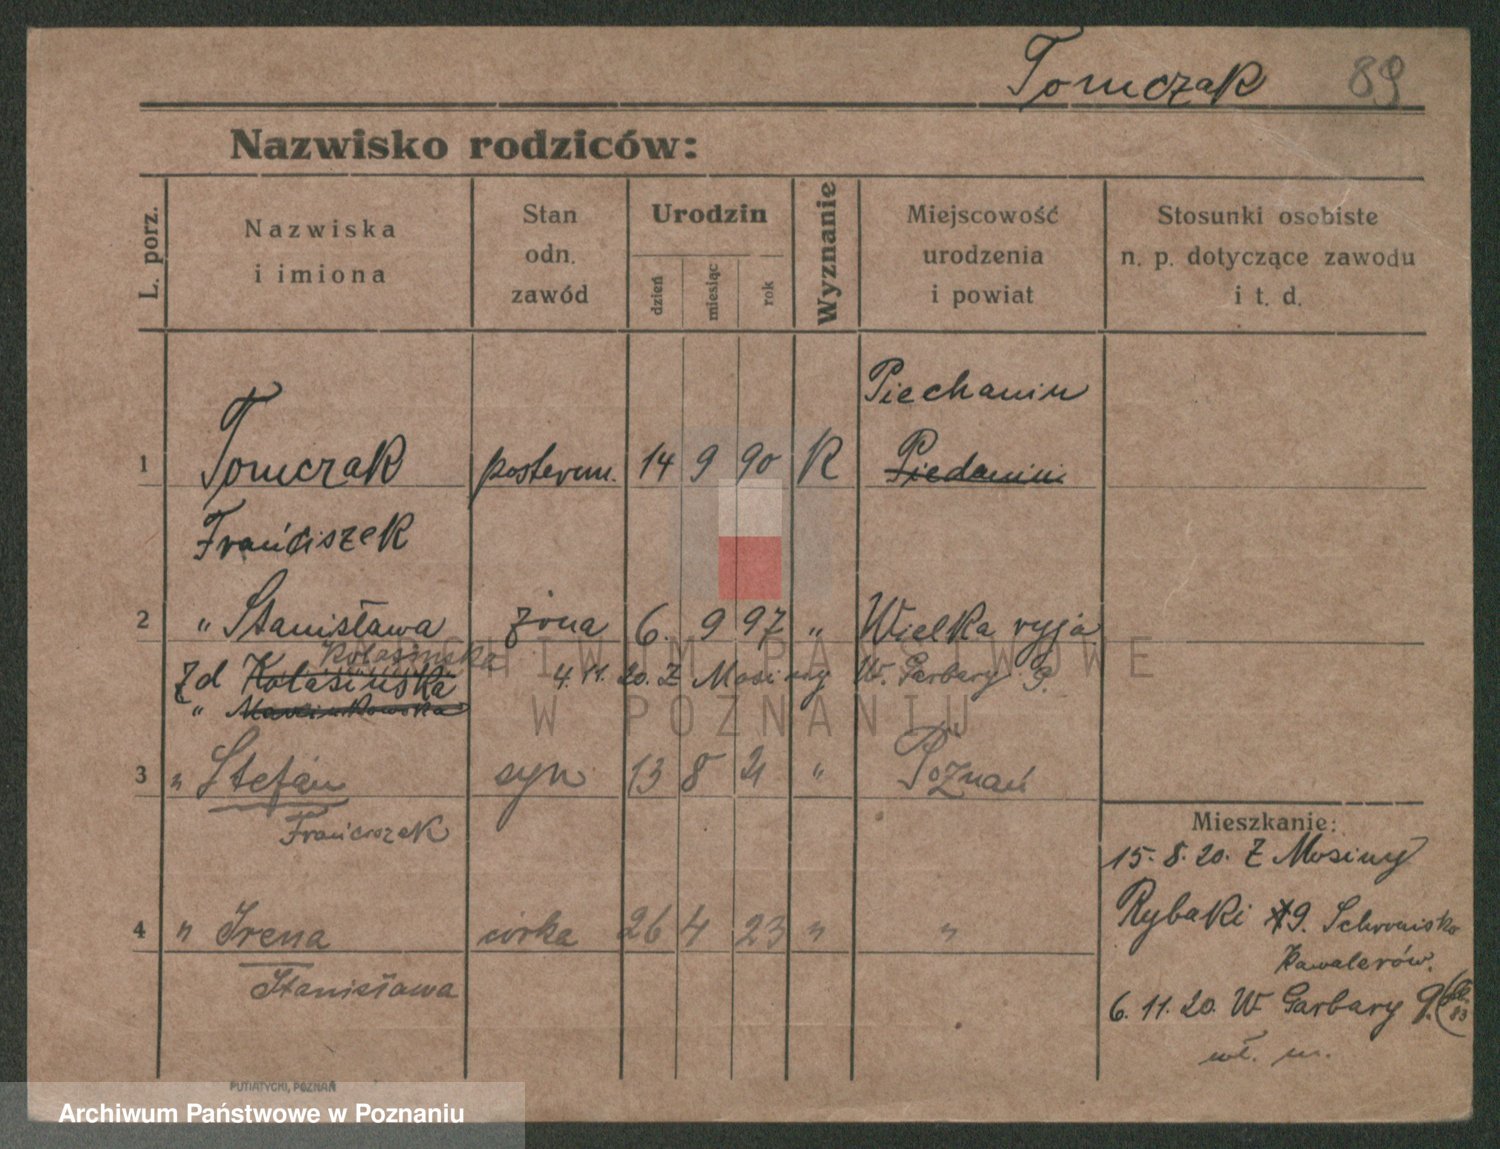 Tomczak 89
Nazwisko rodziców:
L. porz.
Nazwiska
i imiona
Stan
odn.
zawód
Urodzin
dzień
miesiąc
rok
Wyznanie
Miejscowość
urodzenia
i powiat
Stosunki osobiste
n. p. dotyczące zawodu
i t. d.
Piechanin
1 Tomczak posterun. 14 9 90 R Piedanin
Franciszek
2 " Stanisława żona 6. 9 97 " Wielka
Kołasińska
Zd Kołasińska 4.11.20. Z Mosiny W. Garbary 9.
" Marcinkowska
3 " Stefan syn 13 8 21 " Poznań
Franciszek
4 " Irena córka 26 4 23 " "
Stanisława
Mieszkanie:
15.8.20. Z Mosiny
Rybaki 9. Schronisko
Kawalerów.
6.11.20. W Garbary 9.
83
wł. m.
PUTIATYCKI, POZNAŃ
ARCHIWUM PAŃSTWOWE
W POZNANIU
Archiwum Państwowe w Poznaniu